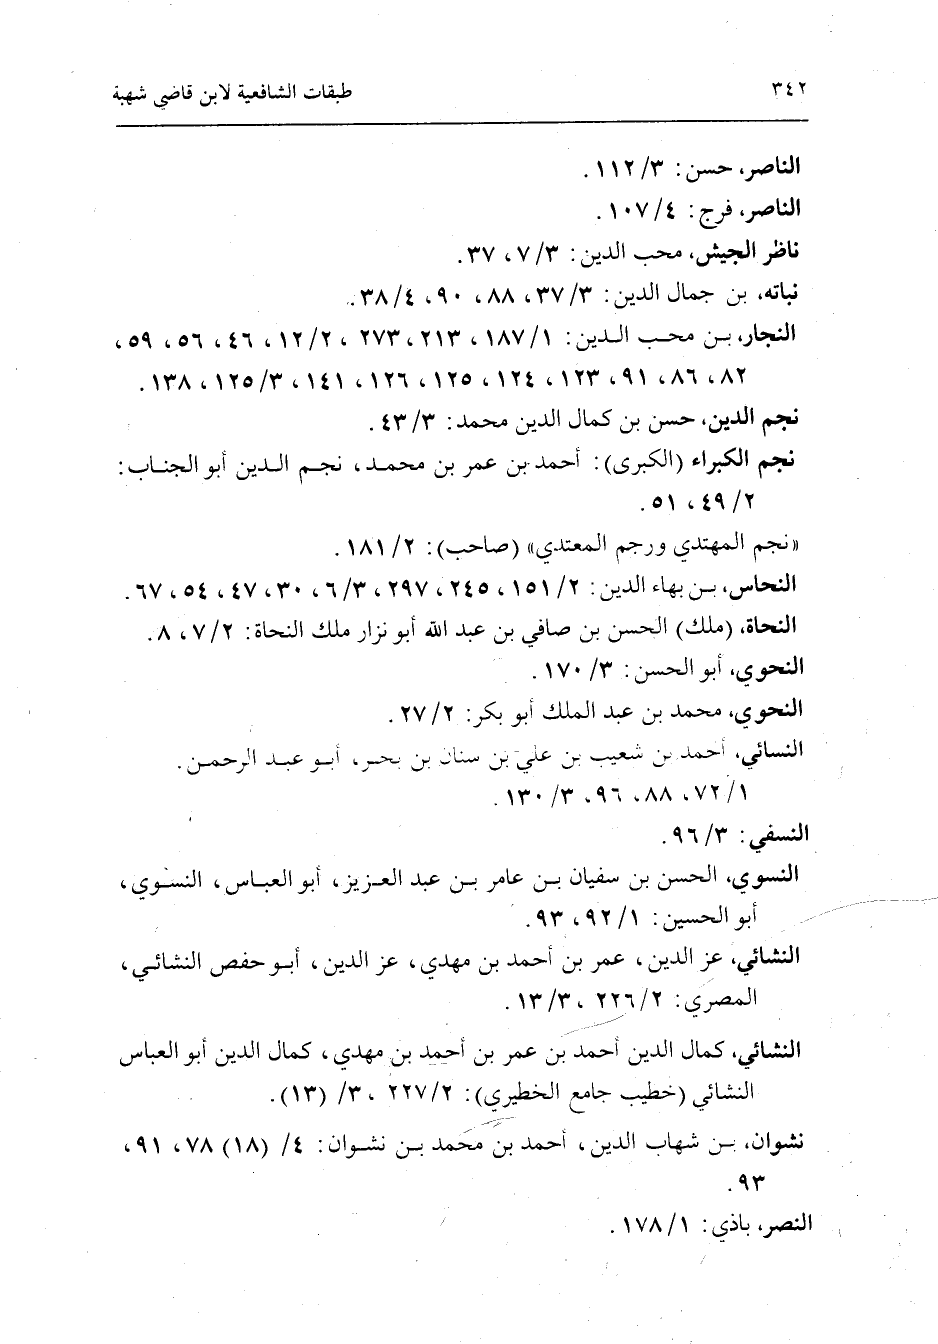 ٣٤٢ طبقات الشافعية لابن قاضي شهبة
الناصر، حسن: ٣/ ١١٢.
الناصر، فرج: ٤/ ١٠٧.
ناظر الجيش، محب الدين: ٣/ ٧، ٣٧.
نباته، بن جمال الدين: ٣/ ٣٧، ٨٨، ٩٠، ٤/ ٣٨.
النجار، بن محب الدين: ١/ ١٨٧، ٢١٣، ٢٧٣، ٢/ ١٢، ٤٦، ٥٦، ٥٩،
٨٢، ٨٦، ٩١، ١٢٣، ١٢٤، ١٢٥، ١٢٦، ١٤١، ٣/ ١٢٥، ١٣٨.
نجم الدين، حسن بن كمال الدين محمد: ٣/ ٤٣.
نجم الكبراء (الكبرى): أحمد بن عمر بن محمد، نجم الدين أبو الجناب:
٢/ ٤٩، ٥١.
«نجم المهتدي ورجم المعتدي» (صاحب): ٢/ ١٨١.
النحاس، بن بهاء الدين: ٢/ ١٥١، ٢٤٥، ٢٩٧، ٣/ ٦، ٣٠، ٤٧، ٥٤، ٦٧.
النحاة، (ملك) الحسن بن صافي بن عبد الله أبو نزار ملك النحاة: ٢/ ٧، ٨.
النحوي، أبو الحسن: ٣/ ١٧٠.
النحوي، محمد بن عبد الملك أبو بكر: ٢/ ٢٧.
النسائي، أحمد بن شعيب بن علي بن سنان بن بحر، أبو عبد الرحمن.
١/ ٧٢، ٨٨، ٩٦، ٣/ ١٣٠.
النسفي: ٣/ ٩٦.
النسوي، الحسن بن سفيان بن عامر بن عبد العزيز، أبو العباس، النسوي،
أبو الحسين: ١/ ٩٢، ٩٣.
النشائي، عز الدين، عمر بن أحمد بن مهدي، عز الدين، أبو حفص النشائي،
المصري: ٢/ ٢٢٦، ٣/ ١٣.
النشائي، كمال الدين أحمد بن عمر بن أحمد بن مهدي، كمال الدين أبو العباس
النشائي (خطيب جامع الخطيري): ٢/ ٢٢٧، ٣/ (١٣).
نشوان، بن شهاب الدين، أحمد بن محمد بن نشوان: ٤/ (١٨) ٧٨، ٩١،
٩٣.
النصر، باذي: ١/ ١٧٨.